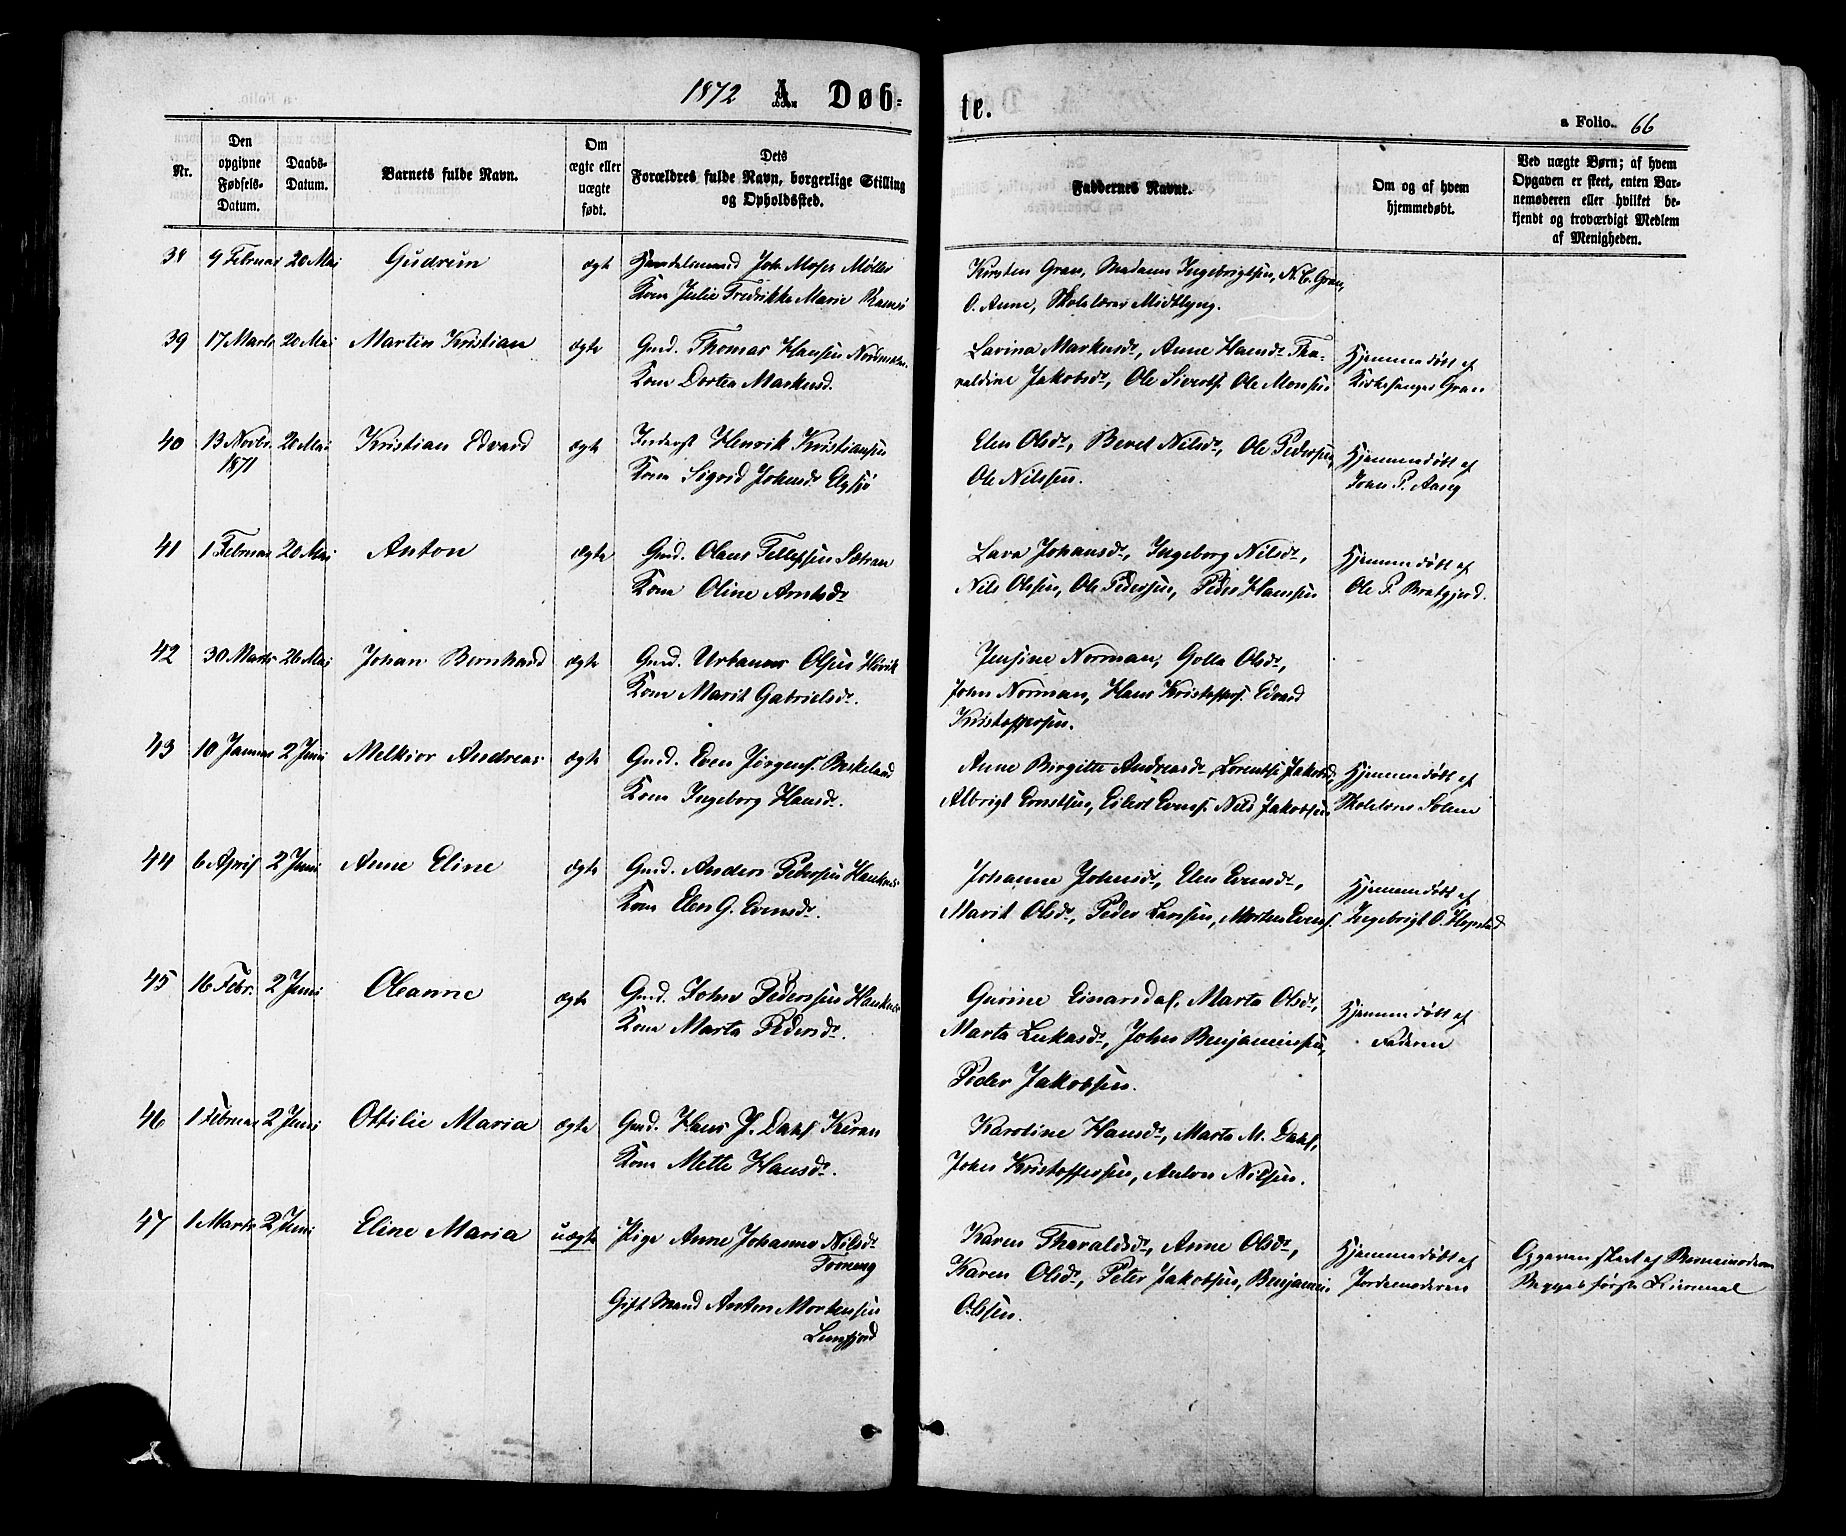 1872 A. Døb-
te.
a Folio. 66
Nr.
Den opgivne Fødsels-Datum.
Daabs-Datum.
Barnets fulde Navn.
Om ægte eller uægte født.
Dets Forældres fulde Navn, borgerlige Stilling og Opholdssted.
Faddernes Navne.
Om og af hvem hjemmedøbt.
Ved uægte Børn; af hvem Opgaven er skeet, enten Barnemoderen eller hvilket bekjendt og troværdigt Medlem af Menigheden.
38 9 Februar 20 Mai Gudrun ægt Handelsmand Joh. Moses Møller
Kone Julie Fredrikke Marie Ramsø
Kirsten Gran, Madam Ingebrigtsen, N. C. Gran,
O. Aune, Skolelærer Midtlyng.
39 17 Marts 20 Mai Martin Kristian ægte Gmd. Thomas Hansen
Kone Dortea Markusd.
Lavina Markusdr, Anne Hansdr Tha-
raldine Jakobsdr, Ole Siverts. Ole Monsen
Hjemmedøbt af
Kirkesanger Gran
40 13 Novbr. 20 Mai Kristian Edvard ægte Inderst Henrik Kristiansen
1871
Kone Sigrid Johnsdr Elgsjø
Elen Olsdr, Beret Nilsdr, Ole Pedersen,
Ole Nilssen.
Hjemmedøbt af
John P.
41 1 Februar 20 Mai Anton ægte Gmd. Olaus Tellefsen
Kone Oline Arntsdr
Lava Johansdr, Ingeborg Nilsdr,
Nils Olssen, Ole Pedersen, Peder Hanssen
Hjemmedøbt af
Ole P. Bratgjerd.
42 30 Marts 26 Mai Johan Bernhard ægte Gmd. Urbanus Olsen Hevik
Kone Marit Gabrielsdr.
Jensine Norman, Golla Olsdr,
John Norman, Hans Kristoffers. Edvard
Kristoffersen.
43 10 Januar 2 Juni Melkior Andreas ægte Gmd. Even Jørgens. Beskeland
Kone Ingeborg Hansdr.
Anne Birgitte Andreasdr, Lorentse Jakobsd,
Albrigt Erntsen, Eilert Evens. Nils Jakobsen
Hjemmedøbt af
Skolelærer Solem
44 6 April 2 Juni Anne Eline ægte Gmd. Anders Petersen
Kone Elen G. Evensdr.
Johanne Johnsdr, Elen Evensdr,
Marit Olsdr, Peder Larssen, Morten Evens.
Hjemmedøbt af
Ingebrigt O. Hopstad
45 16 Febr. 2 Juni Oleanne ægte Gmd. John Pederssen
Kone Marta Pedersdr.
Gurine Einarsdal, Marta Olsdr,
Marta Lukasdr, John Benjaminsen,
Peder Jakobsen.
Hjemmedøbt af
Faderen
46 1 Februar 2 Juni Ottilie Maria ægte Gmd. Hans J. Dahl Kiran
Kone Mette Hansdr.
Karoline Hansdr, Marta M. Dahl,
John Kristoffersen, Anton Nilsen.
47 1 Marts 2 Juni Eline Maria uægte Pige Anne Johanna Nilsdr
Gift Mand Anton Mortensen
Karen Tharaldsdr, Anne Olsdr,
Karen Olsdr, Peter Jakobsen, Benjamin
Olssen.
Hjemmedøbt af
Jordemoderen
Opgaven skeet af Barnemoderen
Begges første Leiermaal